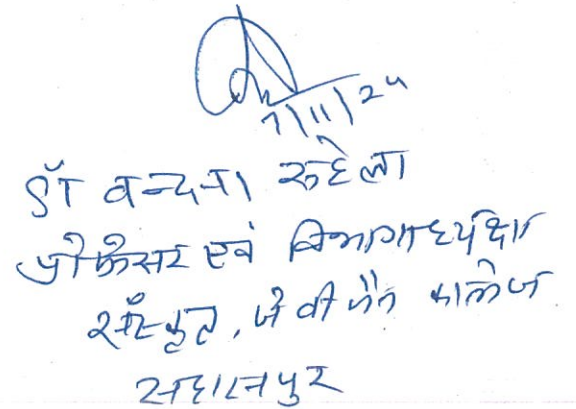 7/11/24
डॉ वन्दना रूहेला
प्रोफेसर एवं विभागाध्यक्षा
संस्कृत, जे वी जैन कालेज
सहारनपुर